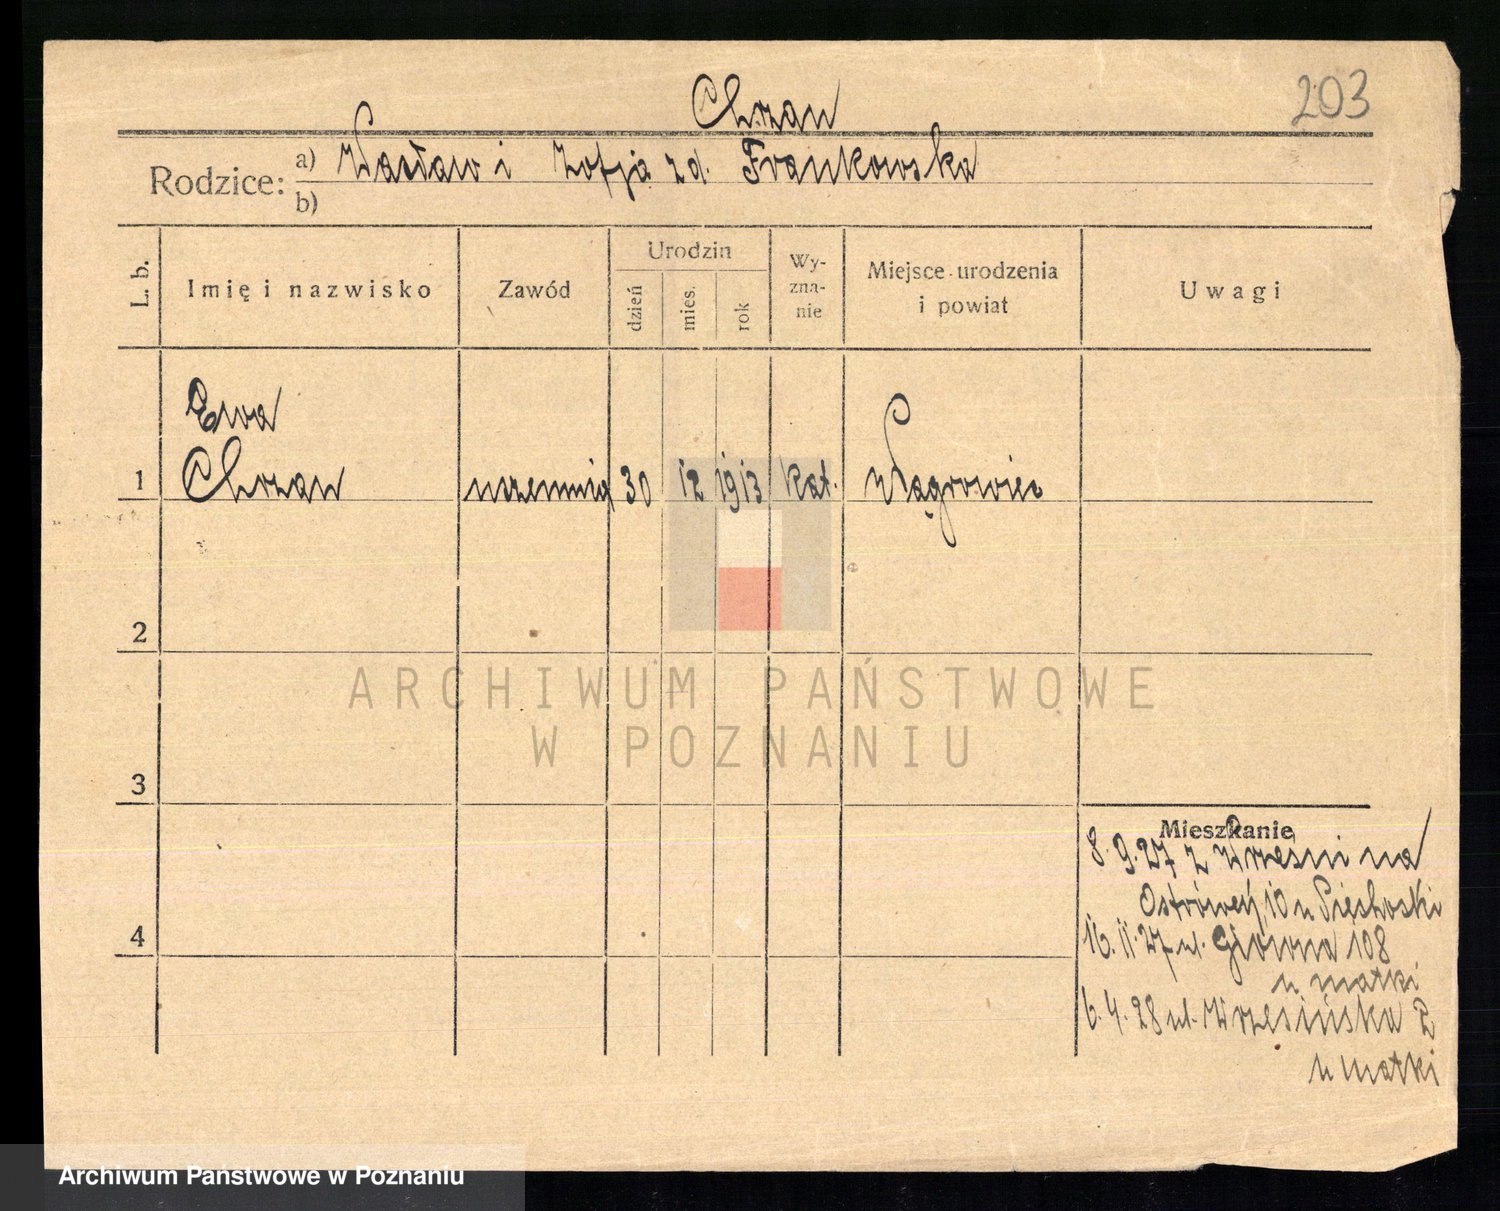 203
Chrzan
Rodzice: a) Wacław i Zofja zd. Frankowska
b)
L. b.
Imię i nazwisko
Zawód
Urodzin
dzień
mies.
rok
Wy-
zna-
nie
Miejsce urodzenia
i powiat
Uwagi
Ewa
1 Chrzan uczennica 30 12 1913 kat. Wągrowiec
2
3
4
Mieszkanie
8.9.27 z Wrześni na
10 u
16.11.27 ul. Główna 108
u matki
6.4.28 ul. Wrzesińska 2
u matki
ARCHIWUM PAŃSTWOWE
W POZNANIU
Archiwum Państwowe w Poznaniu